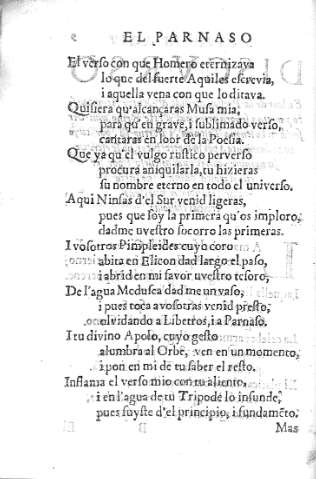 EL PARNASO
El verso con que Homero eternizava
lo que del fuerte Aquiles escrevia,
i aquella vena con que lo ditava.
Quisiera qu'alcançaras Musa mia,
para qu'en grave, i sublimado verso,
cantaras en loor de la Poesia.
Que ya qu'el vulgo rustico perverso
procura aniquilarla, tu hizieras
su nombre eterno en todo el universo.
Aqui Ninfas d'el Sur venid ligeras,
pues que soy la primera qu'os imploro,
dadme vuestro socorro las primeras.
I vosotros Pimpleides cuyo coro
abita en Elicon dad largo el paso,
i abrid en mi favor vuestro tesoro,
De l'agua Medusea dad me un vaso,
i pues toca a vosotras venid presto,
olvidando a Libetros, i a Parnaso.
I tu divino Apolo, cuyo gesto
alumbra al Orbe, ven en un momento,
i pon en mi de tu saber el resto.
Inflama el verso mio con tu aliento,
i en l'agua de tu Tripode lo infunde,
pues fuyste d'el principio, i fundamẽto.
Mas